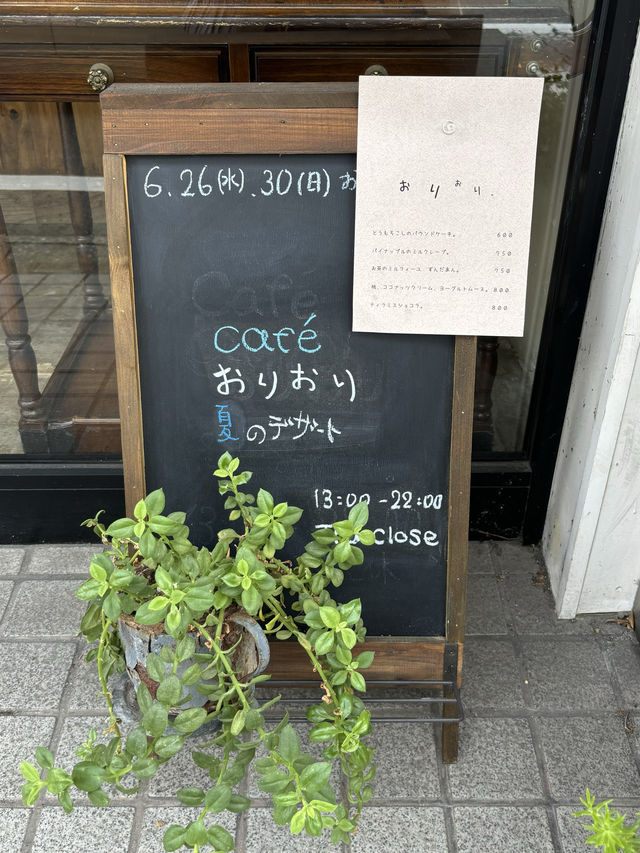 6.26(水).30(日) お
café
おりおり
夏のデザート
13:00-22:00
close
おりおり.
とうもろこしのパウンドケーキ。 600
パイナップルのミルクレープ。 750
お茶のミルフィーユ ずんだあん。 750
桃、ココナッツクリーム、ヨーグルトムース。 800
ティラミスショコラ。 800